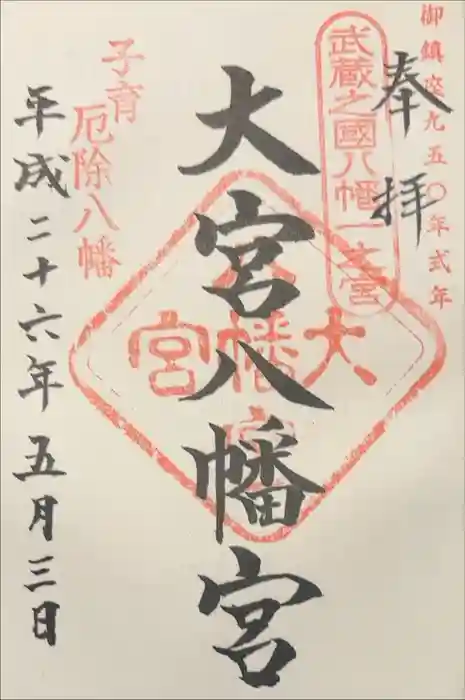 御鎮座九五〇年式年
奉拝
武蔵之國八幡一之宮
大宮八幡宮
大幡宮
子育
厄除八幡
平成二十六年五月三日